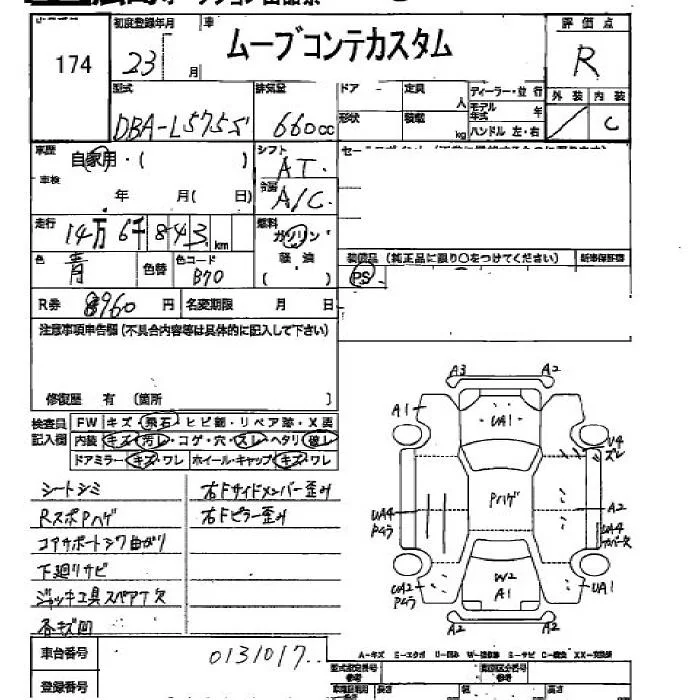 174
初度登録年月
23 月
車
ムーブコンテカスタム
評価点
R
型式
DBA-L575S
排気量
660cc
ドア
定員
人
形状
積載
kg
ディーラー・並行
モデル年式 年
ハンドル 左・右
外装 内装
C
車歴
自家用・( )
車検
年 月( 日)
シフト
AT
冷房
A/C
走行
14万6千843km
燃料
ガソリン
軽油
( )
色
青
色替
色コード
B70
装備品(純正品に限り○をつけてください)
新車保証書
PS
R券 8960円
名変期限 月 日
注意事項申告欄(不具合内容等は具体的に記入して下さい)
修復歴 有 〔箇所 〕
検査員記入欄
FW キズ・飛石・ヒビ割・リペア跡・X要
内装 キズ・汚レ・コゲ・穴・スレ・ヘタリ・破レ
ドアミラー キズ・ワレ ホイール・キャップ キズ・ワレ
シートシミ
RスポPハゲ
コアサポートシワ曲がり
下廻りサビ
ジャッキ工具スペアT欠
各キズ凹
右Fサイドメンバー歪み
右Fピラー歪み
A3 A2
A1
UA1
U4
ズレ
Pハゲ
UA4
Pムラ
A2
UA4
UA2
Pムラ
W2
A1
UA1
A2 A2
車台番号
0131017
登録番号
型式指定番号
参考
類別区分番号
参考
長さ 幅 高さ